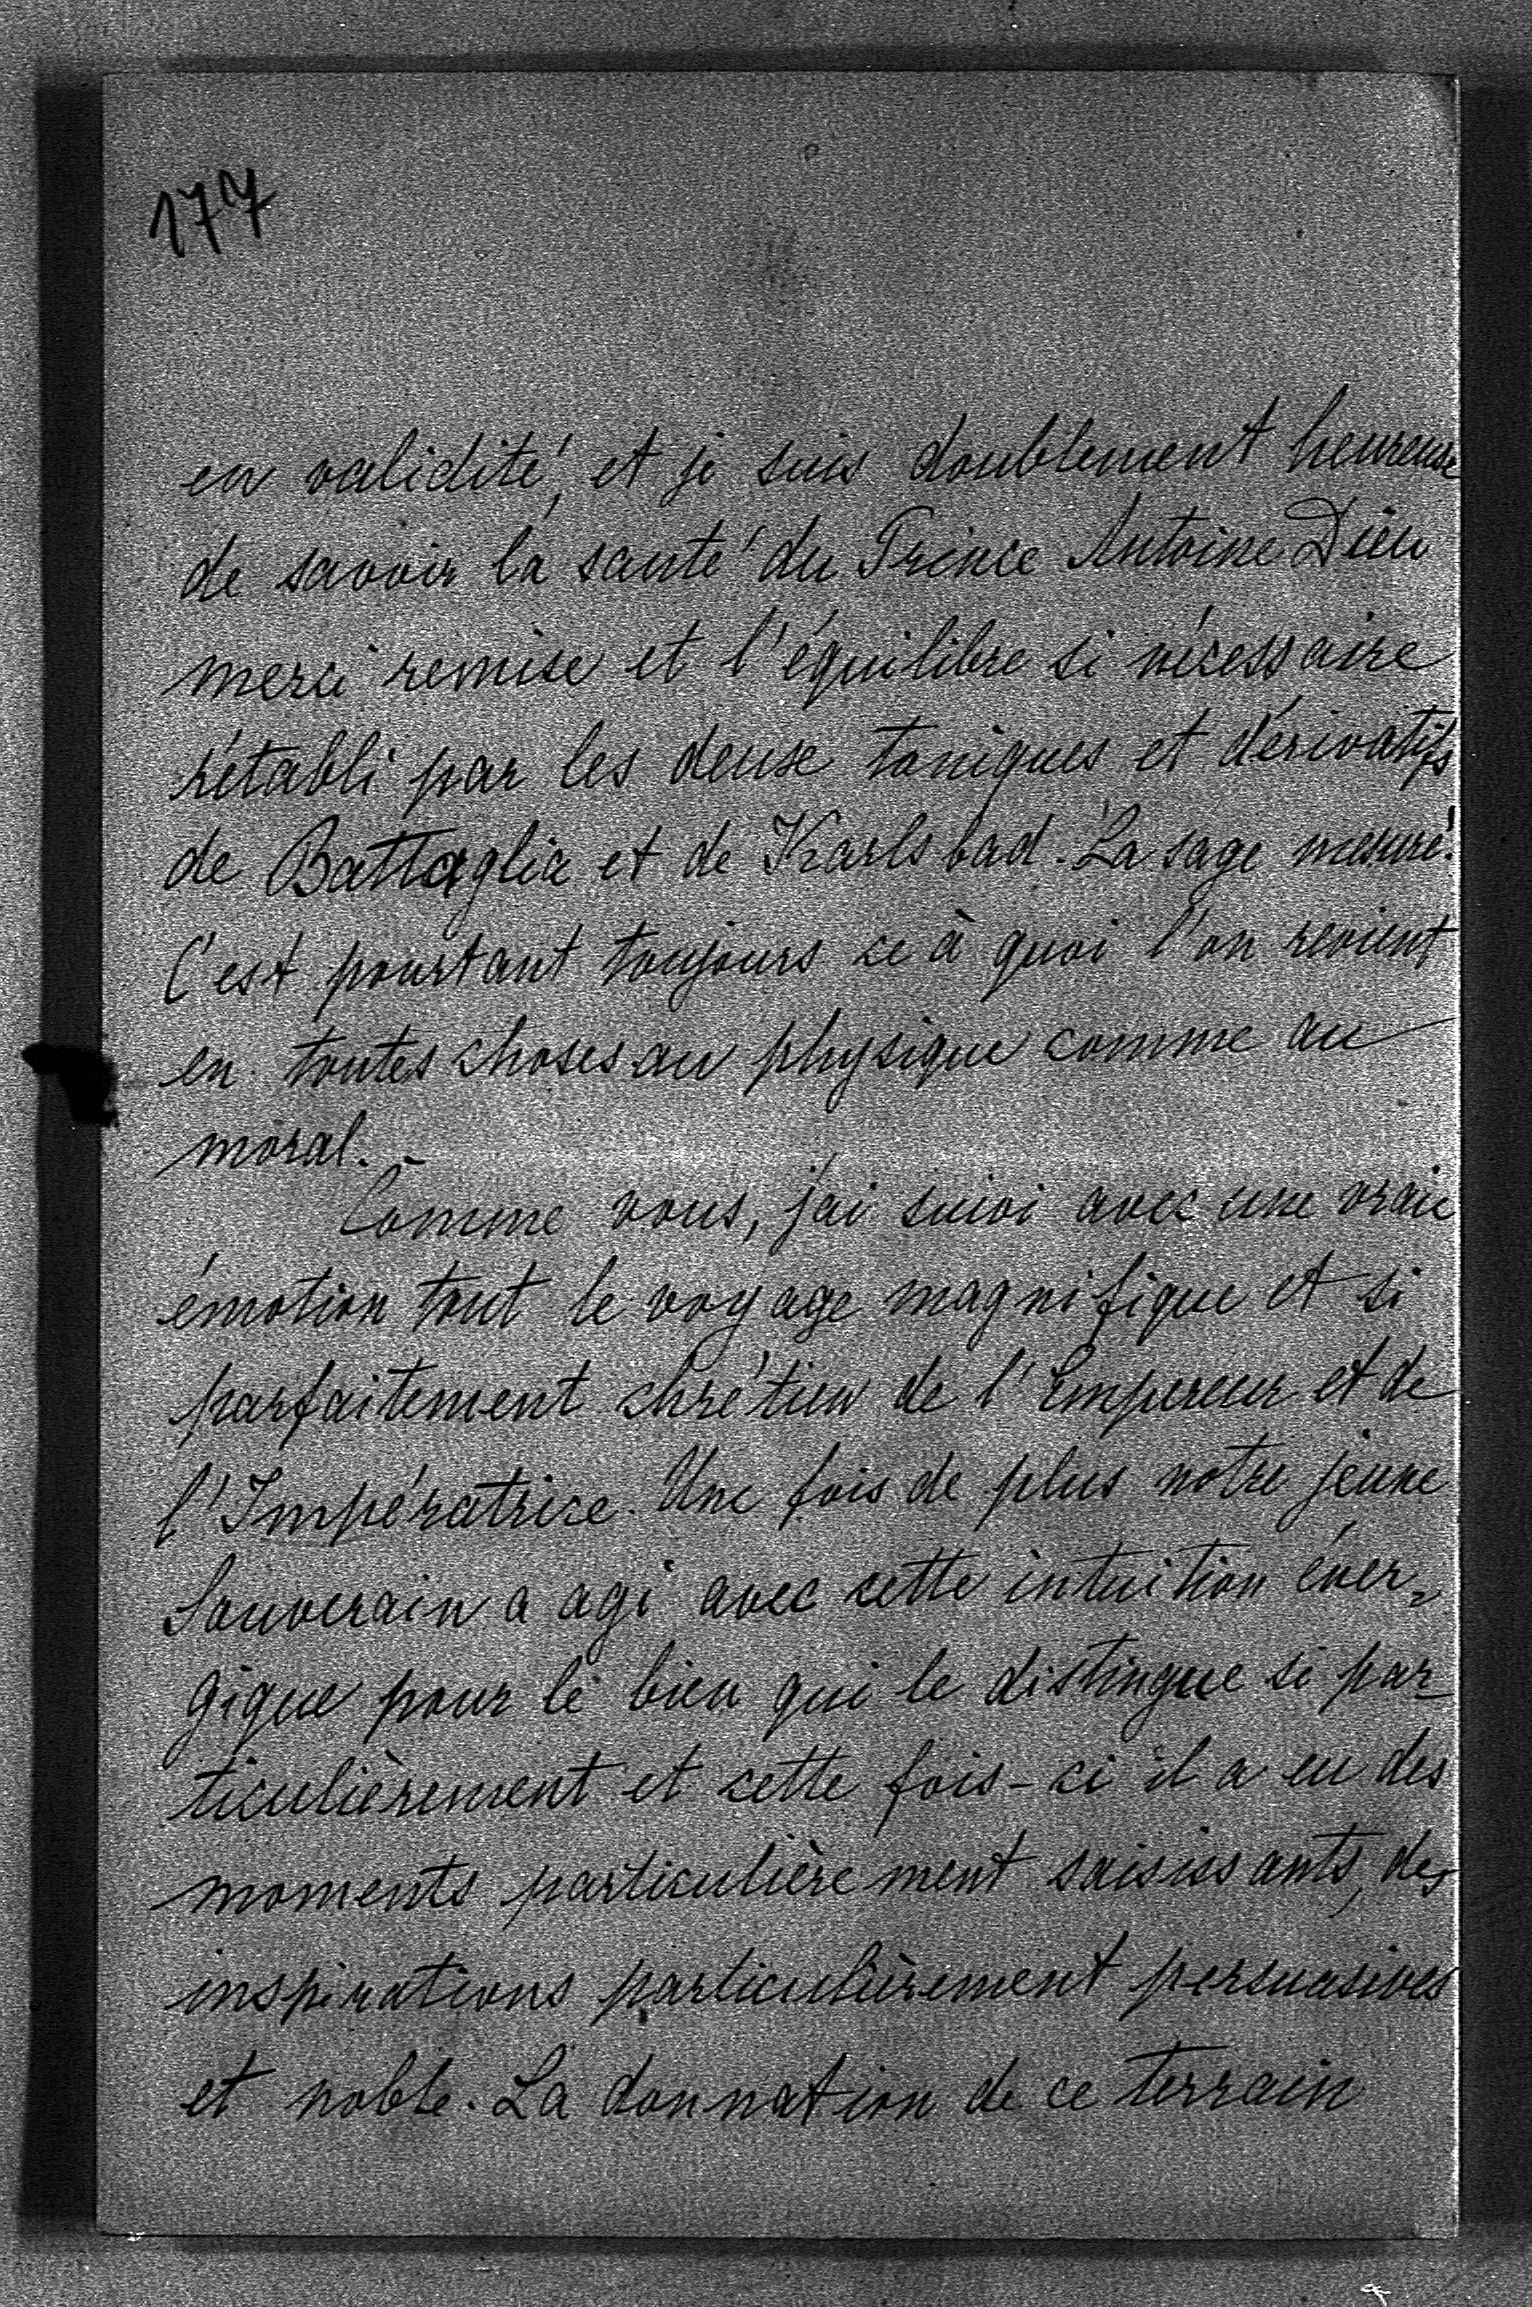 177
en validité, et je suis doublement heureuse
de savoir la santé du Prince Antoine Dieu
merci remise et l'équilibre si nécessaire
rétabli par les deux toniques et dérivatifs
de Battaglia et de Karlsbad. La sage mesure!
C'est pourtant toujours ce à quoi l'on revient
en toutes choses au physique comme au
moral.
Comme vous, j'ai suivi avec une vraie
émotion tout le voyage magnifique et si
parfaitement chrétien de l'Empereur et de
l'Impératrice. Une fois de plus notre jeune
Souverain a agi avec cette intuition éner-
gique pour le bien qui le distingue si par-
ticulièrement et cette fois-ci il a eu des
moments particulièrement saisissants, des
inspirations particulièrement persuasives
et noble. La donnation de ce terrain